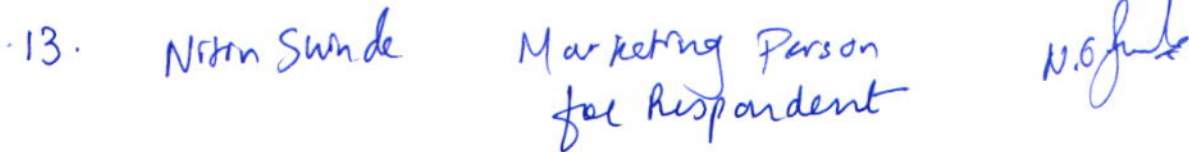 13. Nitin Shinde Marketing Person
for Respondent